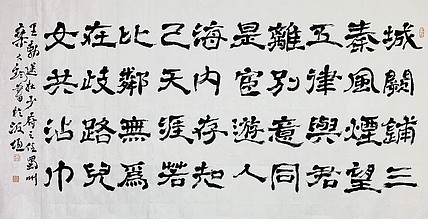 城闕鋪三
秦風煙望
五津與君
離別意同
是宦遊人
海內存知
己天涯若
比鄰無為
在岐路兒
女共沾巾
王勃送杜少府之任蜀州
書於